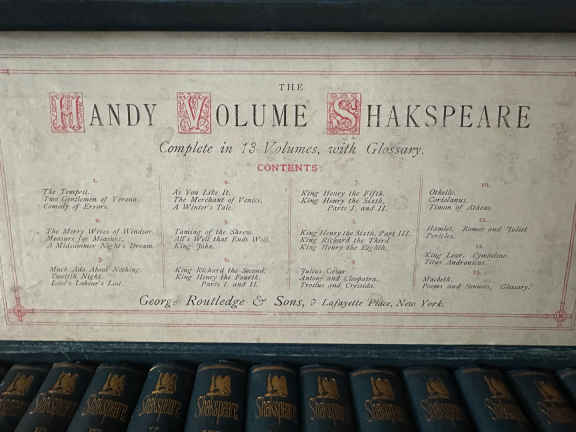 THE
HANDY VOLUME SHAKSPEARE
Complete in 13 Volumes, with Glossary.
CONTENTS:
1.
The Tempest.
Two Gentlemen of Verona.
Comedy of Errors.
2.
The Merry Wives of Windsor.
Measure for Measure.
A Midsummer Night's Dream.
3.
Much Ado About Nothing.
Twelfth Night.
Love's Labour's Lost.
4.
As You Like It.
The Merchant of Venice.
A Winter's Tale.
5.
Taming of the Shrew.
All's Well that Ends Well.
King John.
6.
King Richard the Second.
King Henry the Fourth,
Parts I. and II.
7.
King Henry the Fifth.
King Henry the Sixth,
Parts I. and II.
8.
King Henry the Sixth, Part III.
King Richard the Third.
King Henry the Eighth.
9.
Julius Cæsar.
Antony and Cleopatra.
Troilus and Cressida.
10.
Othello.
Coriolanus.
Timon of Athens.
11.
Hamlet. Romeo and Juliet.
Pericles.
12.
King Lear. Cymbeline.
Titus Andronicus.
13.
Macbeth.
Poems and Sonnets, Glossary.
George Routledge & Sons, 9 Lafayette Place, New York.
Shakspeare
Shakspeare
Shakspeare
Shakspeare
Shakspeare
Shakspeare
Shakspeare
Shakspeare
Shakspeare